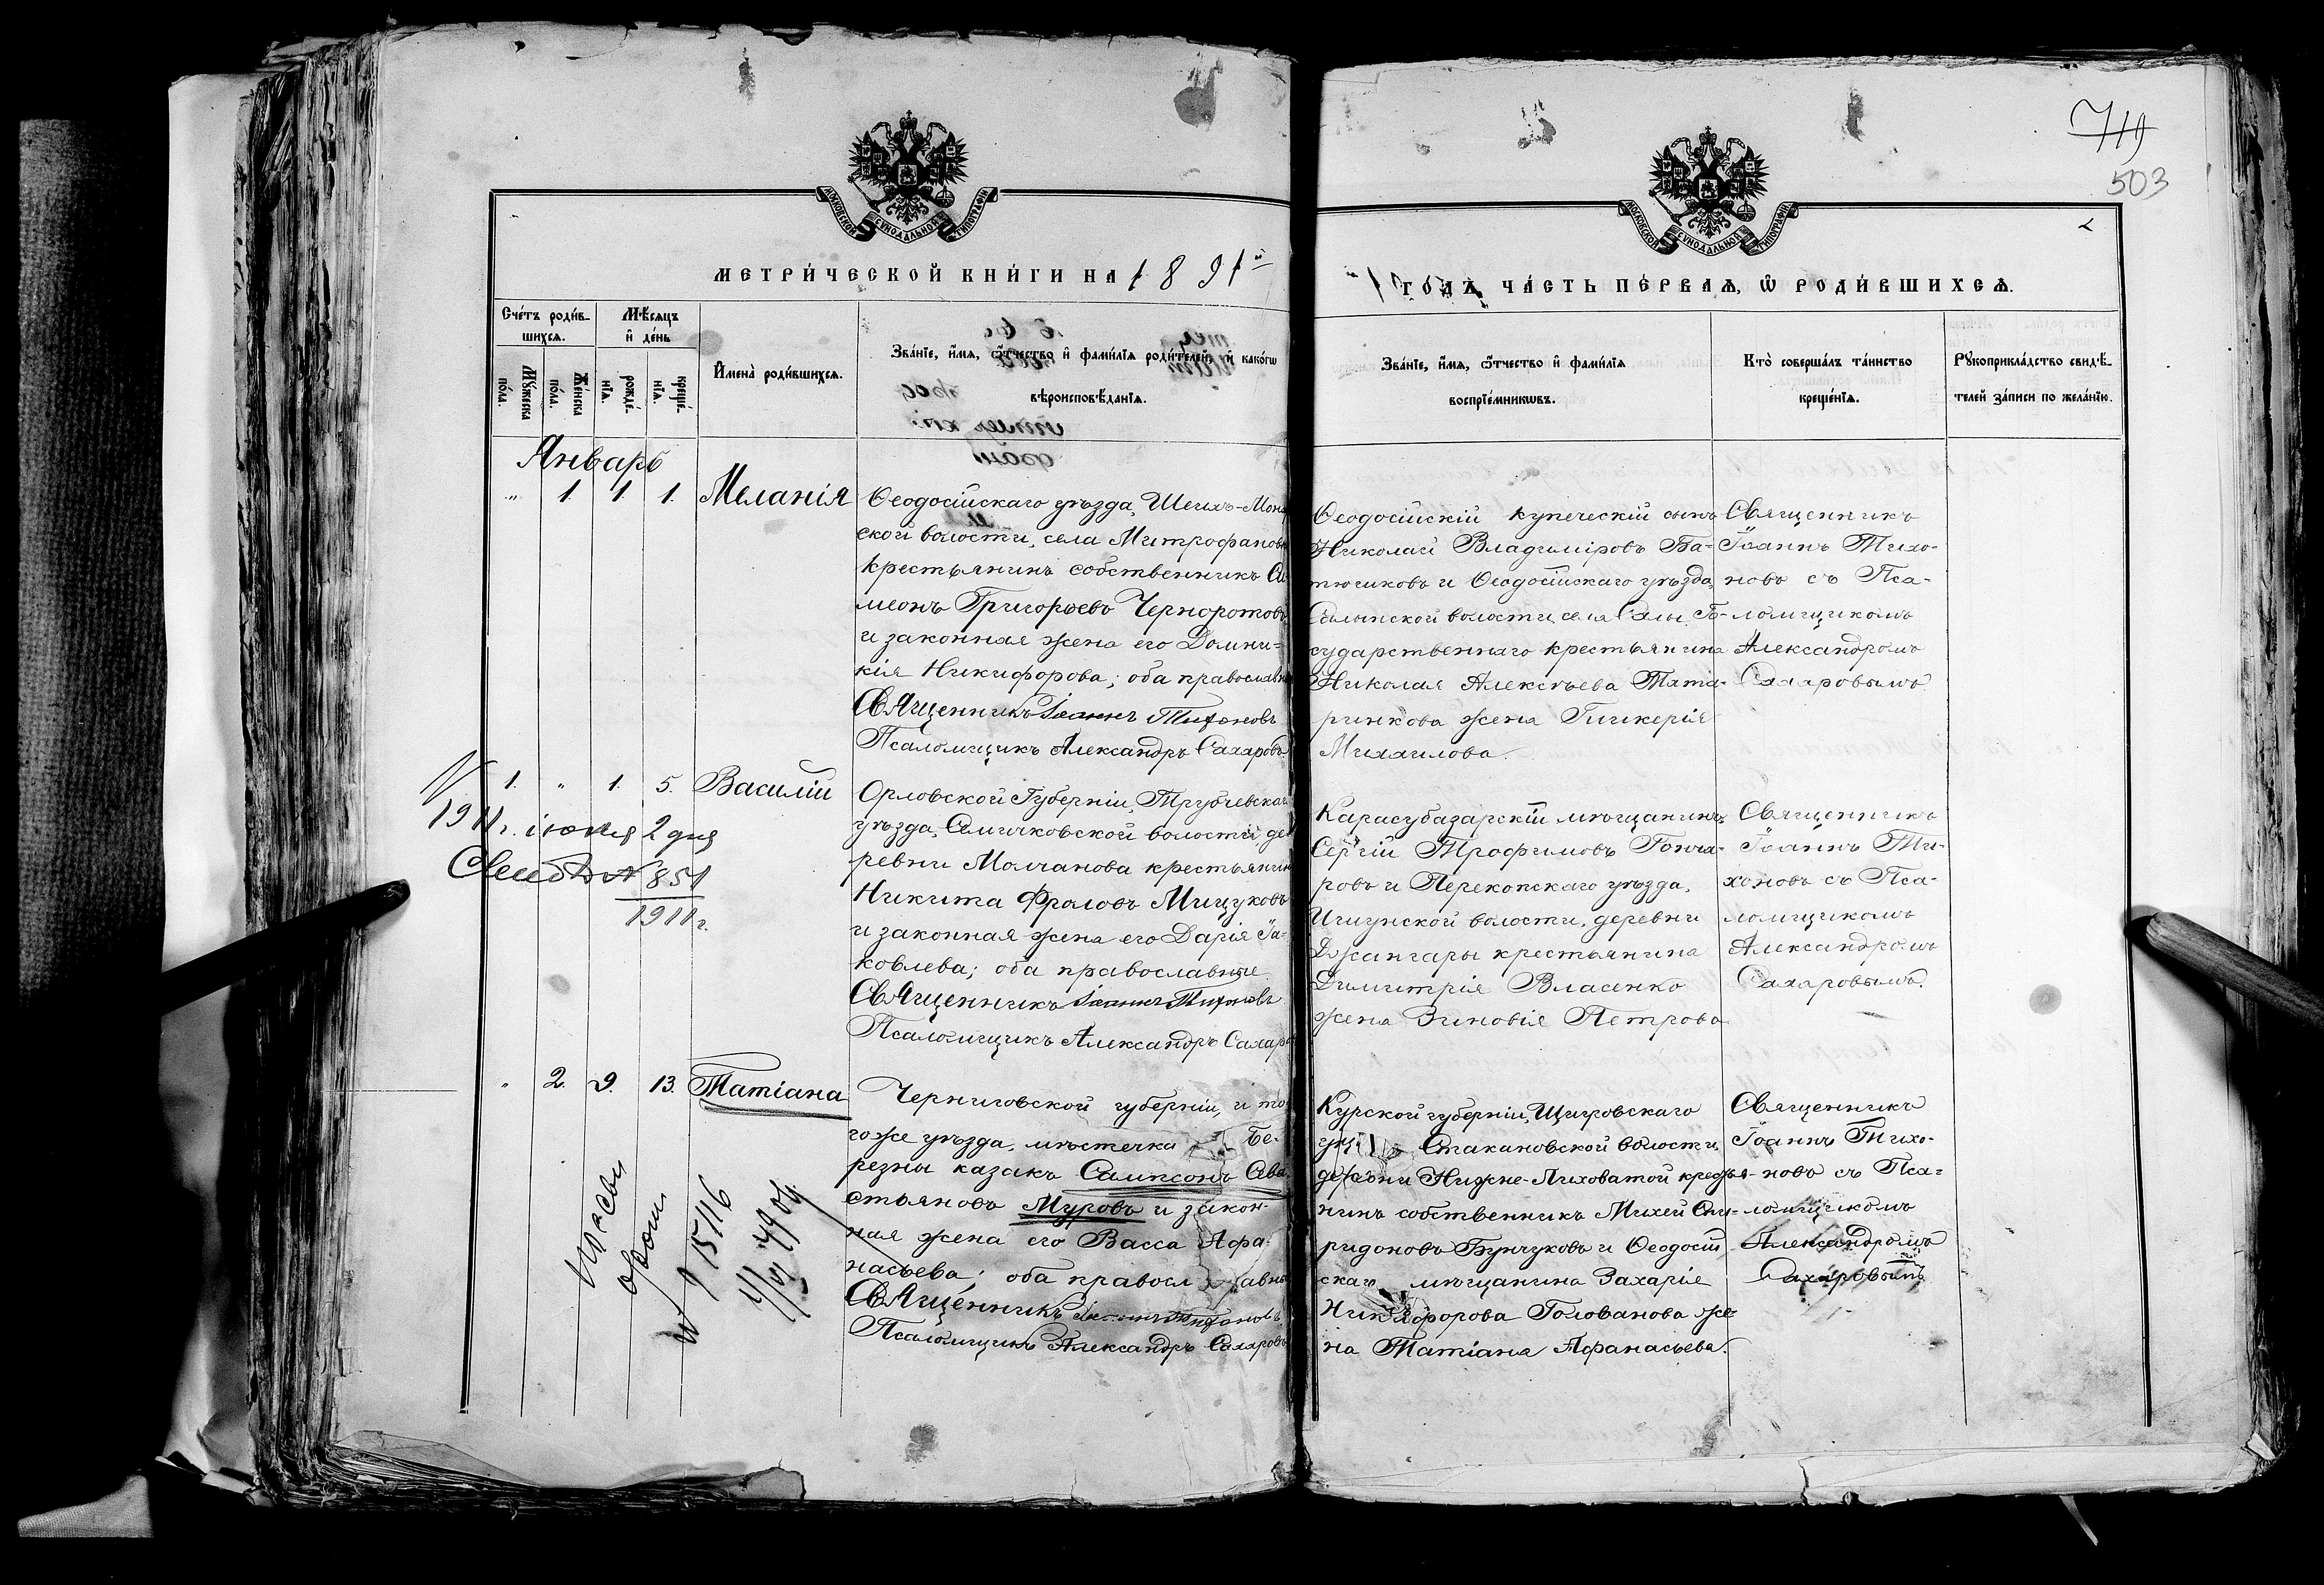 719
503
МОСКОВСКОЙ СѴНОДАЛЬНОЙ ТИПОГРАФІИ
МОСКОВСКОЙ СѴНОДАЛЬНОЙ ТИПОГРАФІИ
МЕТРИ́ЧЕСКОЙ КНИ́ГИ НА 1891й
ГО́ДЪ, ЧА́СТЬ ПЕ́РВАѦ, Ѡ҆ РОДИ́ВШИХСѦ.
Сче́тъ роди́в-
шихсѧ.
Мꙋ́жеска по́ла.
Же́нска по́ла.
Мѣ́сѧцъ
и҆ де́нь
рожде́-
нїѧ.
креще́-
нїѧ.
И҆мена̀ роди́вшихсѧ.
Зва́нїе, и҆́мѧ, ѻ҆́тчество и҆ фами́лїѧ роди́телей, и҆ како́гѡ
вѣроисповѣ́данїѧ.
Зва́нїе, и҆́мѧ, ѻ҆́тчество и҆ фами́лїѧ
воспрїе́мникѡвъ.
Кто̀ соверша́лъ та́инство
креще́нїѧ.
Рꙋкоприкла́дство свидѣ́-
телей за́писи по жела́нїю.
Январь
" 1 1 1. Меланія
Ѳеодосійскаго уѣзда, Шеихъ-Мона
ской волости, села Митрофановк
крестьянинъ собственникъ Си
меонъ Григорьевъ Черноротовъ
и законная жена его Домни-
кія Никифорова; оба православн
Священникъ Іоаннъ Тихоновъ
Псаломщикъ Александръ Сахаровъ
Ѳеодосійскій купеческій сынъ
Николай Владиміровъ Ба-
тюшковъ и Ѳеодосійскаго уѣзда,
Салынской волости села Салы, Го-
сударственнаго крестьянина
Николая Алексѣева Тата-
ринкова жена Гликерія
Михаилова.
Священникъ
Іоаннъ Тихо-
новъ съ Пса-
ломщикомъ
Александромъ
Сахаровымъ
1. " 1. 5. Василій
1911 г. іюня 2 дня
851
1911 г.
Орловской Губерніи, Трубчевскаг
уѣзда, Самичковской волости, де
ревни Молчанова крестьянин
Никита Фроловъ Мищуковъ
и законная жена его Дарія Іа-
ковлева; оба православные
Священникъ Іоаннъ Тихоновъ
Псаломщикъ Александръ Сахаро
Карасубазарскій мѣщанинъ
Сергій Трофимовъ Гонча-
ровъ и Перекопскаго уѣзда,
Ишунской волости, деревни
Джангары крестьянина
Димитрія Власенко
жена Зиновія Петрова
Священникъ
Іоаннъ Ти-
хоновъ съ Пса-
ломщикомъ
Александромъ
Сахаровымъ.
" 2. 9. 13. Татіана
№ 15116
1904
Черниговской губерніи, и то
гоже уѣзда, мѣстечка Бе-
резны казакъ Сампсонъ Сева
стьяновъ Муровъ и закон-
ная жена его Васса Афа-
насьева; оба правосл авны
Священникъ Іоаннъ Тихоновъ
Псаломщикъ Александръ Сахаровъ
Курской губерніи, Щигровскаго
Стакановской волости,
деревни Нижне-Лиховатой крестья-
нинъ собственникъ Михей Спи-
ридоновъ Бунчуковъ и Ѳеодосій
скаго мѣщанина Захарія
Никифорова Голованова же-
на Татіана Афанасьева.
Священникъ
Іоаннъ Тихо-
новъ съ Пса-
ломщикомъ
Александромъ
Сахаровымъ